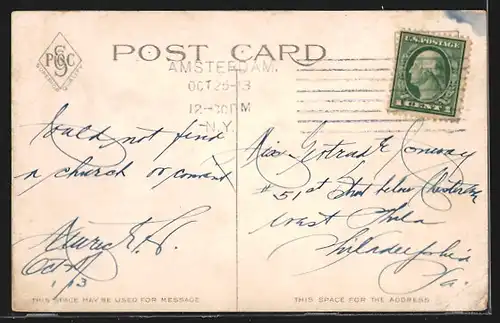 PSC
SUPERIOR QUALITY
POST CARD
U.S. POSTAGE
1 CENT 1
AMSTERDAM,
OCT 25-13
12-30PM
N.Y.
Could not find
a church or convent
Oct
13
Miss Gertrude Conway
#51st Street below Chester Ave
West Phila
Philadelphia
Pa.
THIS SPACE MAY BE USED FOR MESSAGE
THIS SPACE FOR THE ADDRESS